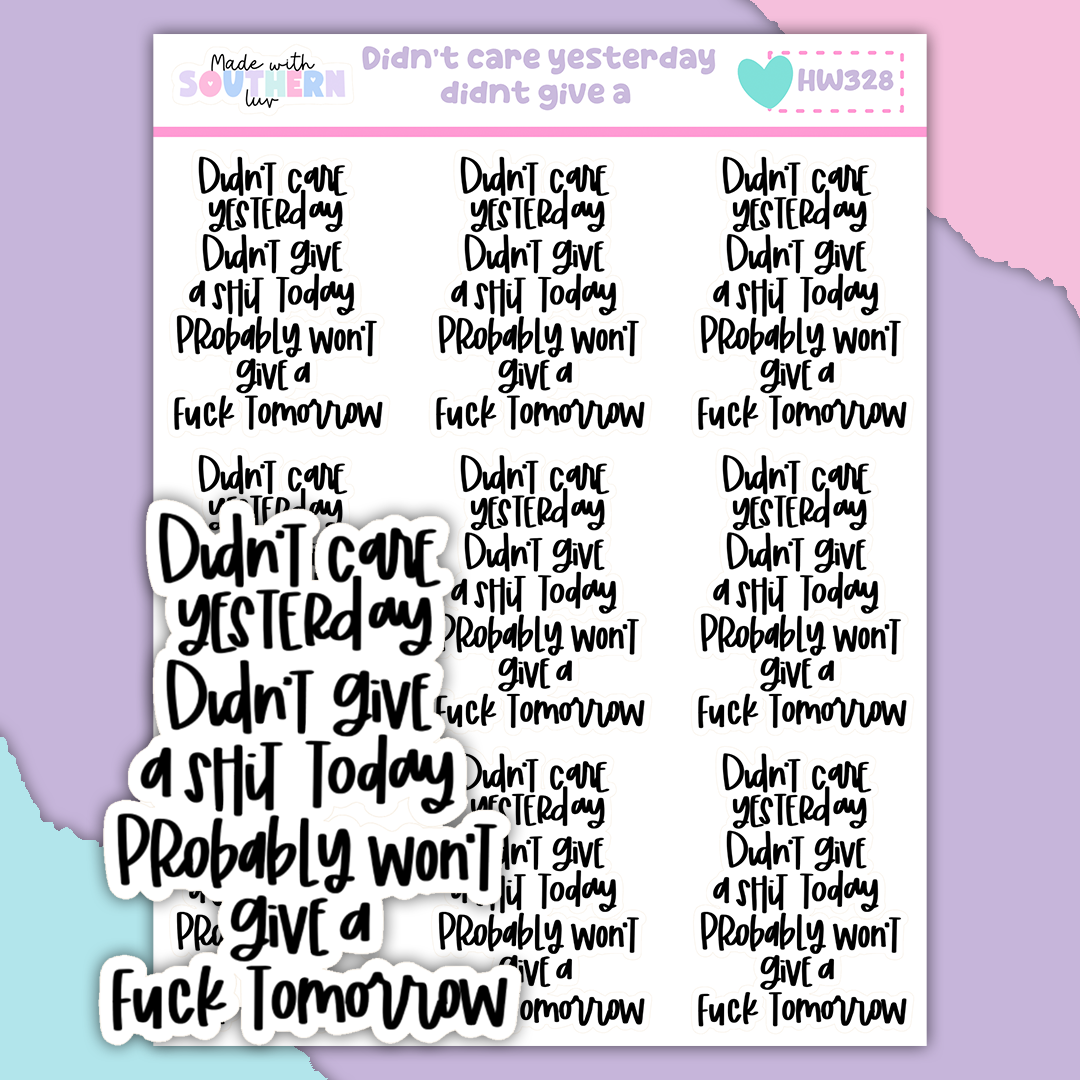 Made with
SOUTHERN
luv
Didn't care yesterday
didnt give a
HW328
Didn't care
yesterday
Didn't give
a shit Today
Probably won't
give a
Fuck Tomorrow
Didn't care
yesterday
Didn't give
a shit Today
Probably won't
give a
Fuck Tomorrow
Didn't care
yesterday
Didn't give
a shit Today
Probably won't
give a
Fuck Tomorrow
Didn't care
yesterday
Didn't care
yesterday
Didn't give
a shit Today
Probably won't
give a
Fuck Tomorrow
Didn't care
yesterday
Didn't give
a shit Today
Probably won't
give a
Fuck Tomorrow
Didn't care
yesterday
Didn't give
a shit Today
Probably won't
give a
Fuck Tomorrow
Didn't care
yesterday
give
shit Today
Probably won't
give a
Tomorrow
Didn't care
yesterday
Didn't give
a shit Today
Probably won't
give a
Fuck Tomorrow